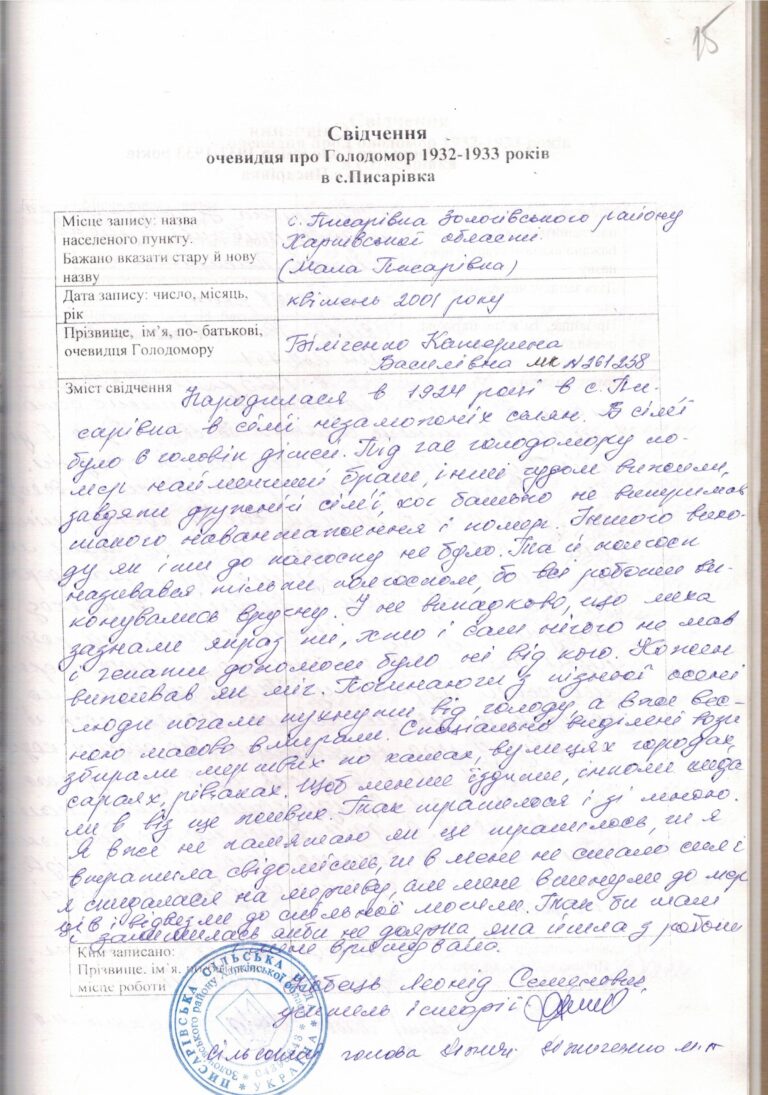 15
Свідчення
очевидця про Голодомор 1932-1933 років
в с.Писарівка
Місце запису: назва
населеного пункту.
Бажано вказати стару й нову
назву
с. Писарівка Золочівського району
Харківської області.
(Мала Писарівка)
Дата запису: число, місяць,
рік
квітень 2001 року
Прізвище, ім’я, по- батькові,
очевидця Голодомору
Біліченко Катерина
Василівна МК N261258
Зміст свідчення
Народилася в 1924 році в с. Пи-
сарівка в сім'ї незаможніх селян. В сім'ї
було 6 головік дітей. Під час голодомору по-
мер найменший брат, інші чудом вижили,
завдяки дружній сім'ї, хоч батько не витримав
такого навантаження і помер. Іншого вихо-
ду як іти до колгоспу не було. Та й колгосп
називався тільки колгоспом, бо всі роботи ви-
конувались вручну. І не випадково, що лиха
зазнали якраз ті, хто і сам нічого не мав
і чекати допомоги було ні від кого. Кожен
виживав як міг. Починаючи з пізньої осені
люди почали пухнути від голоду, а вже вес-
ною масово вмирали. Спеціально виділені вози
збирали мертвих по хатах, вулицях городах,
сараях, рівчаках. Щоб менше їздити, інколи кида
ли в віз ще живих. Так трапилося і зі мною.
Я вже не пам'ятаю як це трапилось, чи я
втратила свідомість, чи в мене не стало сил і
я сховалася на мертву, але мене вкинули до мер
ців і відвезли до спільної могили. Так би там
і залишилась якби не доярка яка йшла з роботи
і мене врятувала.
Ким записано:
Прізвище, ім’я,
місце роботи
Леонід Семенович
учитель історії
Сільський голова
ПИСАРІВСЬКА СІЛЬСЬКА РАДА * УКРАЇНА *
Золочівського району Харківської області